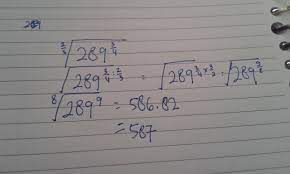 289
²⁄₃√289^(3/4)
√289^(3/4 : 2/3) = √289^(3/4 × 3/2) = √289^(9/8)
⁸√289⁹ = 586.82
= 587